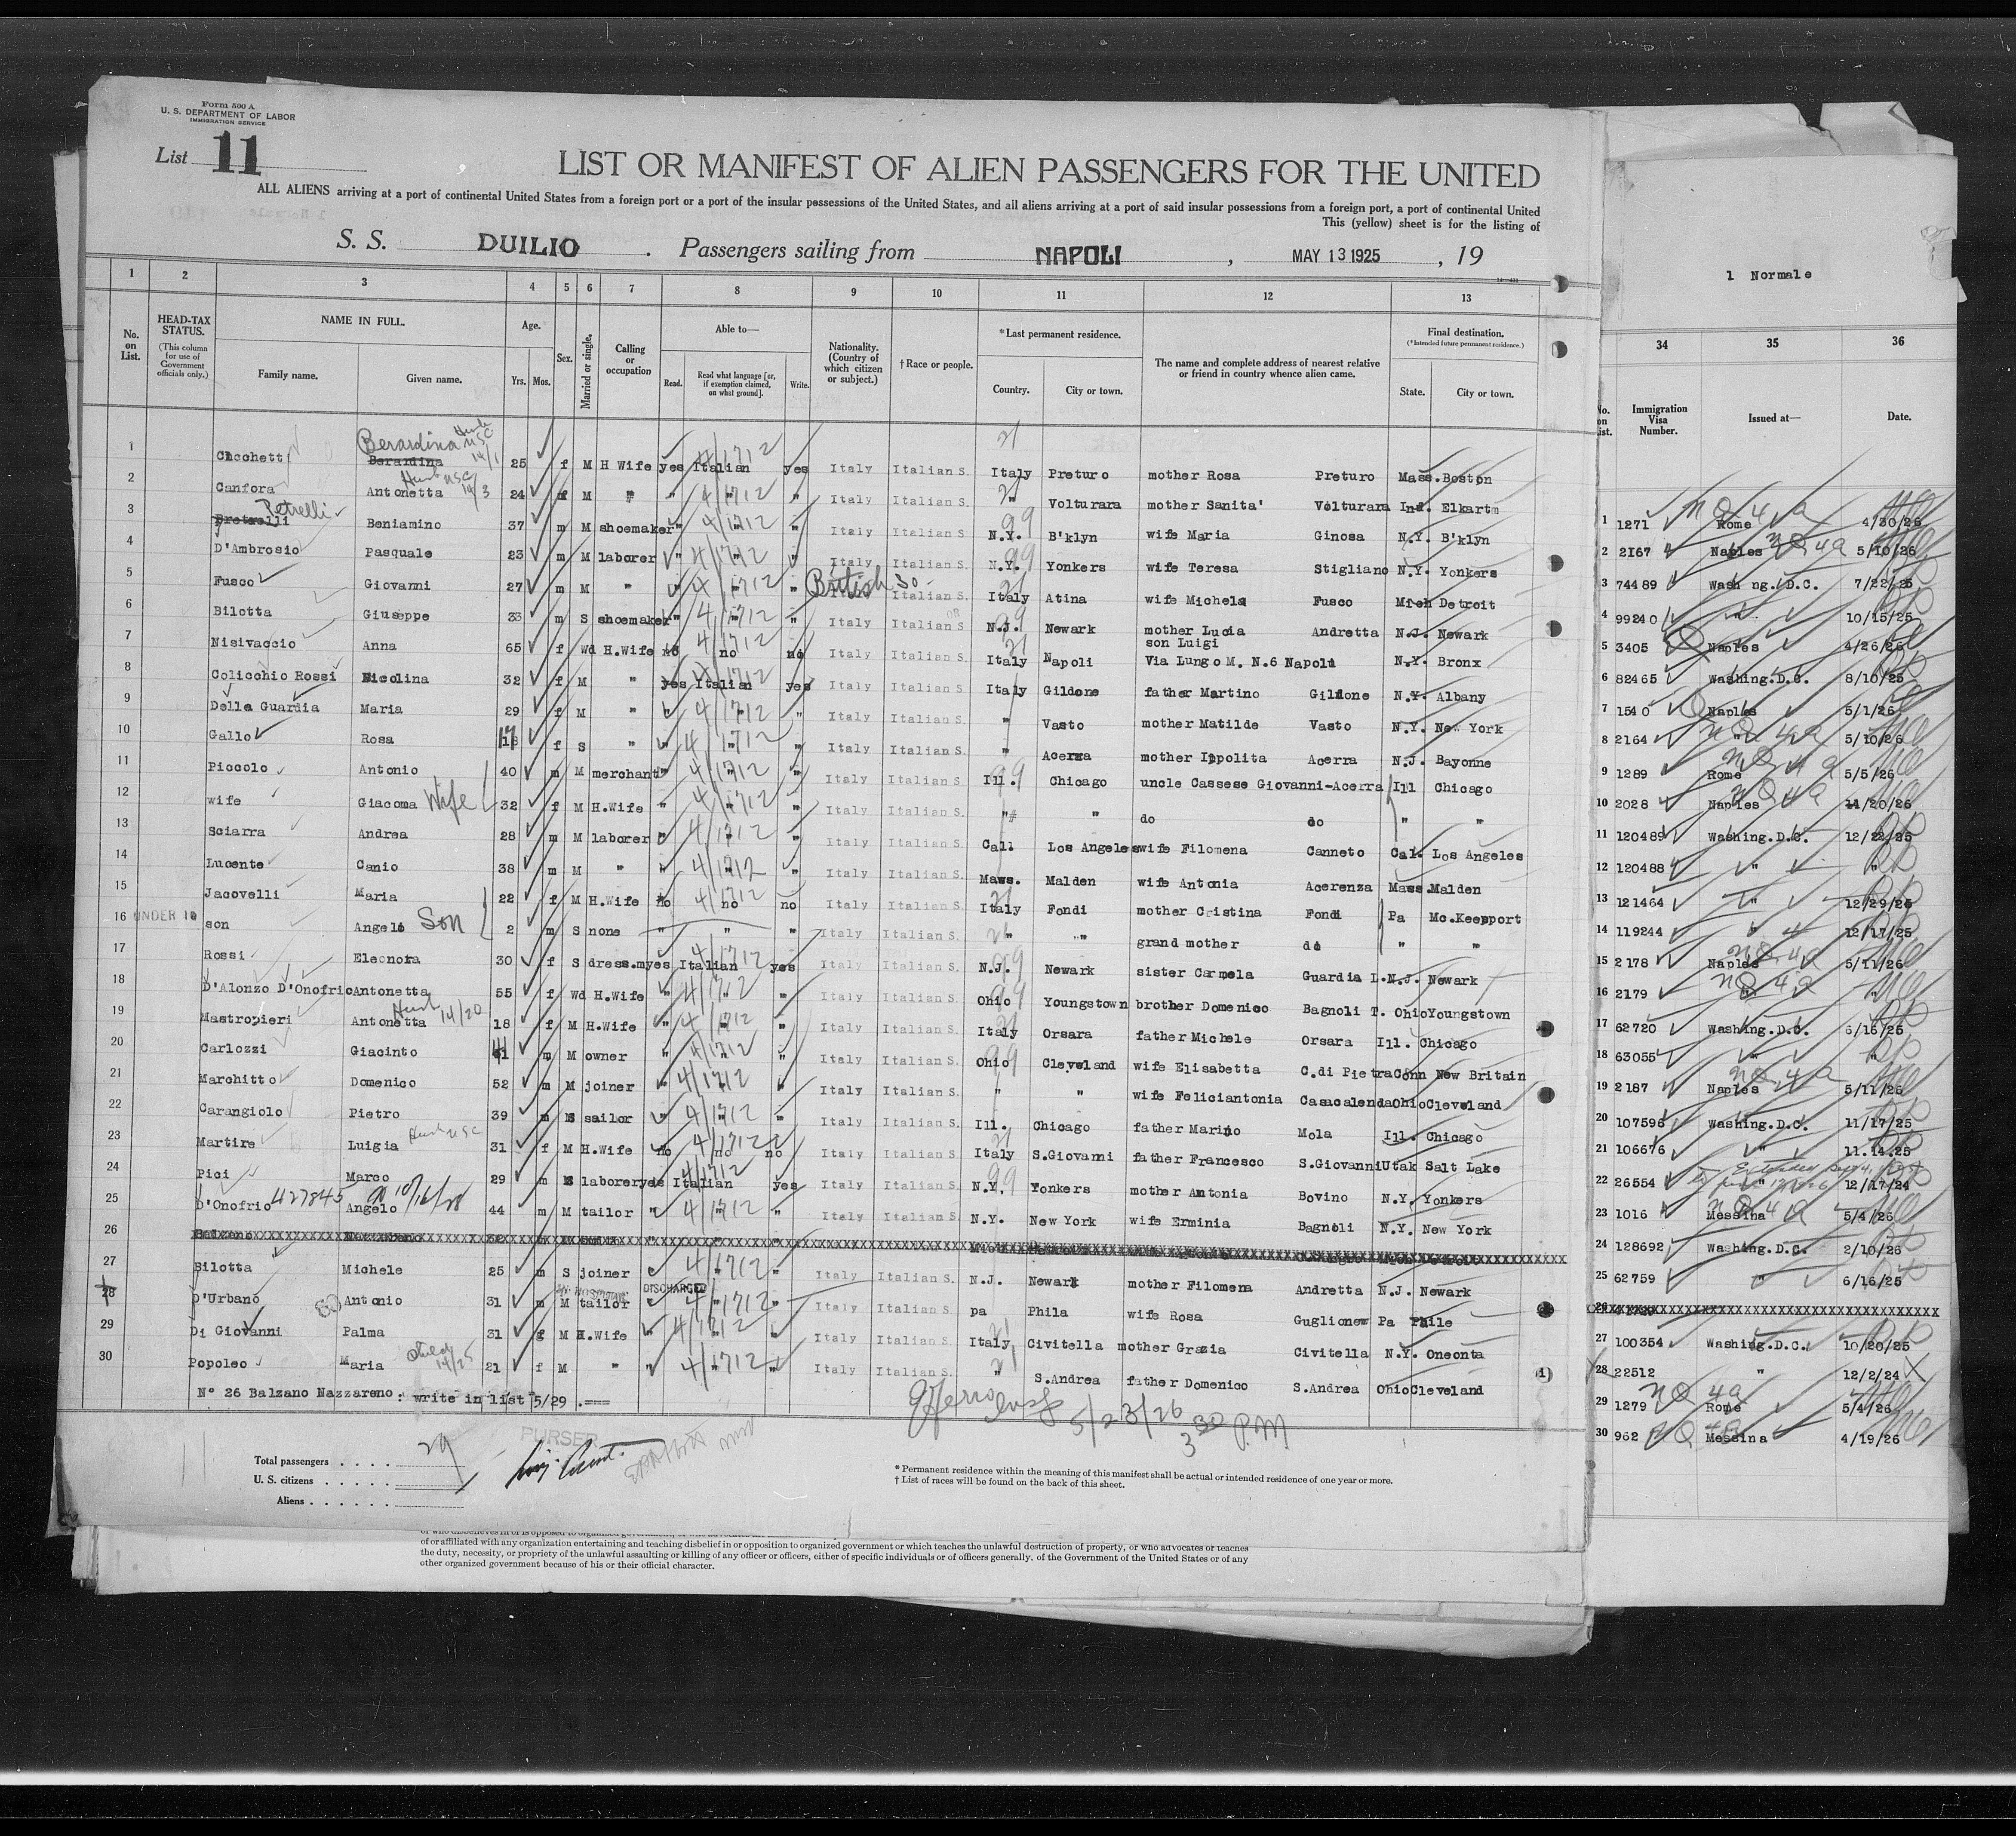 Form 500 A
U. S. DEPARTMENT OF LABOR
IMMIGRATION SERVICE
List 11
LIST OR MANIFEST OF ALIEN PASSENGERS FOR THE UNITED
ALL ALIENS arriving at a port of continental United States from a foreign port or a port of the insular possessions of the United States, and all aliens arriving at a port of said insular possessions from a foreign port, a port of continental United
This (yellow) sheet is for the listing of
S. S. DUILIO . Passengers sailing from NAPOLI , MAY 13 1925 , 19
1 Normale
1 2 3 4 5 6 7 8 9 10 11 12 13 34 35 36
No. on List.
HEAD-TAX STATUS.
(This column for use of Government officials only.)
NAME IN FULL.
Family name. Given name.
Age.
Yrs. Mos.
Sex.
Married or single.
Calling or occupation
Able to—
Read. Read what language [or, if exemption claimed, on what ground]. Write.
Nationality. (Country of which citizen or subject.)
† Race or people.
* Last permanent residence.
Country. City or town.
The name and complete address of nearest relative or friend in country whence alien came.
Final destination.
(*Intended future permanent residence.)
State. City or town.
No. on List. Immigration Visa Number. Issued at— Date.
1 Chochetti Berardina Berardina 25 f M H Wife yes Italian yes Italy Italian S. Italy Preturo mother Rosa Preturo Mass. Boston
2 Canfora Antonetta 24 f M " " " " Italy Italian S. " Volturara mother Sanita' Volturara Ind. Elkart
3 Petrelli Beniamino 37 m M shoemaker " " " Italy Italian S. N.Y. B'klyn wife Maria Ginosa N.Y. B'klyn
4 D'Ambrosio Pasquale 23 m M laborer " " " Italy Italian S. N.Y. Yonkers wife Teresa Stigliano N.Y. Yonkers
5 Fusco Giovanni 27 m M " " " " British So. Italian S. Italy Atina wife Michela Fusco Mich Detroit
6 Bilotta Giuseppe 33 m S shoemaker " " " Italy Italian S. N.J. Newark mother Lucia Andretta N.J. Newark
7 Nisivaccio Anna 65 f Wd H.Wife no no no Italy Italian S. Italy Napoli son Luigi Via Lungo M. N.6 Napoli N.Y. Bronx
8 Colicchio Rossi Nicolina 32 f M " yes Italian yes Italy Italian S. Italy Gildone father Martino Gildone N.Y. Albany
9 Della Guardia Maria 29 f M " " " " Italy Italian S. " Vasto mother Matilde Vasto N.Y. New York
10 Gallo Rosa f S " " " " Italy Italian S. " Acerra mother Ippolita Acerra N.J. Bayonne
11 Piccolo Antonio 40 m M merchant " " " Italy Italian S. Ill. Chicago uncle Cassese Giovanni-Acerra Ill Chicago
12 wife Giacoma Wife 32 f M H.Wife " " " Italy Italian S. " " do do " "
13 Sciarra Andrea 28 m M laborer " " " Italy Italian S. Cal. Los Angeles wife Filomena Canneto Cal. Los Angeles
14 Lucente Canio 38 m M " " " " Italy Italian S. Mass. Malden wife Antonia Acerenza Mass. Malden
15 Jacovelli Maria 22 f M H.Wife no no no Italy Italian S. Italy Fondi mother Cristina Fondi Pa Mc.Keesport
16 UNDER 16 son Angelo Son 2 m S none " " " Italy Italian S. " " grand mother do " "
17 Rossi Eleonora 30 f S dress.m yes Italian yes Italy Italian S. N.J. Newark sister Carmela Guardia L. N.J. Newark
18 D'Alonzo D'Onofrio Antonetta 55 f Wd H.Wife " " " Italy Italian S. Ohio Youngstown brother Domenico Bagnoli T. Ohio Youngstown
19 Mastropieri Antonetta 18 f M H.Wife " " " Italy Italian S. Italy Orsara father Michele Orsara Ill. Chicago
20 Carlozzi Giacinto 41 m M owner " " " Italy Italian S. Ohio Cleveland wife Elisabetta C.di Pietra Conn New Britain
21 Marchitto Domenico 52 m M joiner " " " Italy Italian S. " " wife Feliciantonia Casacalenda Ohio Cleveland
22 Carangiolo Pietro 39 m S sailor " " " Italy Italian S. Ill. Chicago father Marino Mola Ill. Chicago
23 Martire Luigia 31 f M H.Wife no no no Italy Italian S. Italy S.Giovanni father Francesco S.Giovanni Utah Salt Lake
24 Pici Marco 29 m S laborer yes Italian yes Italy Italian S. N.Y. Yonkers mother Antonia Bovino N.Y. Yonkers
25 D'Onofrio 427845 Angelo 10/16/28 44 m M tailor " " " Italy Italian S. N.Y. New York wife Erminia Bagnoli N.Y. New York
26 Balzano Nazzareno
27 Bilotta Michele 25 m S joiner " " " Italy Italian S. N.J. Newark mother Filomena Andretta N.J. Newark
28 D'Urbano Antonio 31 m M tailor IN HOSPITAL DISCHARGED " " " Italy Italian S. pa Phila wife Rosa Guglionew Pa Phile
29 Di Giovanni Palma 31 f M H.Wife " " " Italy Italian S. Italy Civitella mother Grazia Civitella N.Y. Oneonta
30 Popoleo Maria 21 f M " " " " Italy Italian S. " S.Andrea father Domenico S.Andrea Ohio Cleveland
N° 26 Balzano Nazzareno: write in list 5/29 .===
5/23/26
3 30 P.M
1 1271 Rome 4/30/26
2 2167 Naples 5/10/26
3 74489 Washing.D.C. 7/22/25
4 99240 " 10/15/25
5 3405 Naples 4/26/26
6 82465 Washing.D.C. 8/10/25
7 1540 Naples 5/1/26
8 2164 " 5/10/26
9 1289 Rome 5/5/26
10 2028 Naples 4/20/26
11 120489 Washing.D.C. 12/22/25
12 120488 " "
13 121464 " 12/29/25
14 119244 " 12/17/25
15 2178 Naples 5/11/26
16 2179 " "
17 62720 Washing.D.C. 6/16/25
18 63055 " "
19 2187 Naples 5/11/26
20 107596 Washing.D.C. 11/17/25
21 106676 " 11.14.25
22 26554 " 12/17/24
23 1016 Messina 5/4/26
24 128692 Washing.D.C. 2/10/26
25 62759 " 6/16/25
26
27 100354 Washing.D.C. 10/20/25
28 22512 " 12/2/24
29 1279 Rome 5/4/26
30 962 Messina 4/19/26
Total passengers . . . . 29
U. S. citizens . . . . .
Aliens . . . . . .
PURSER
* Permanent residence within the meaning of this manifest shall be actual or intended residence of one year or more.
† List of races will be found on the back of this sheet.
or who disbelieves in or is opposed to organized government, or who advocates the
of or affiliated with any organization entertaining and teaching disbelief in or opposition to organized government or which teaches the unlawful destruction of property, or who advocates or teaches
the duty, necessity, or propriety of the unlawful assaulting or killing of any officer or officers, either of specific individuals or of officers generally, of the Government of the United States or of any
other organized government because of his or their official character.